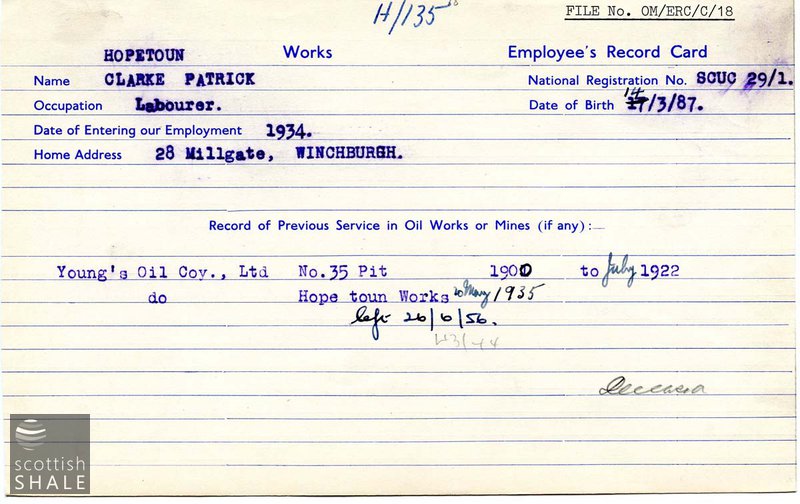 H/135
FILE No. OM/ERC/C/18
HOPETOUN Works Employee's Record Card
Name CLARKE PATRICK National Registration No. SCUC 29/1.
Occupation Labourer. Date of Birth 14/3/87.
Date of Entering our Employment 1934.
Home Address 28 Millgate, WINCHBURGH.
Record of Previous Service in Oil Works or Mines (if any):—
Young's Oil Coy., Ltd No.35 Pit 1900 to July 1922
do Hope toun Works 1935
left 26/6/56.
Deceased
scottish
SHALE